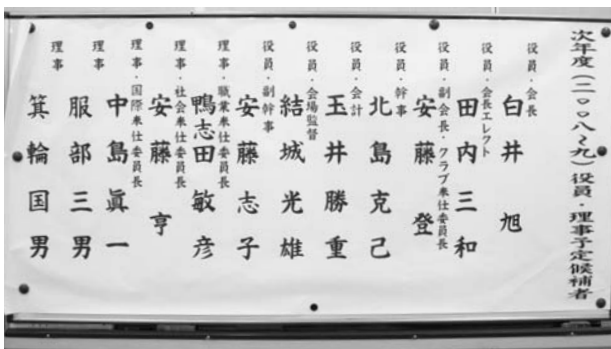 次年度(二〇〇八〜九)役員・理事予定候補者
役員・会長
白井旭
役員・会長エレクト
田内三和
役員・副会長・クラブ奉仕委員長
安藤登
役員・幹事
北島克己
役員・会計
玉井勝重
役員・会場監督
結城光雄
役員・副幹事
安藤志子
理事・職業奉仕委員長
鴨志田敏彦
理事・社会奉仕委員長
安藤亨
理事・国際奉仕委員長
中島眞一
理事
服部三男
理事
箕輪国男